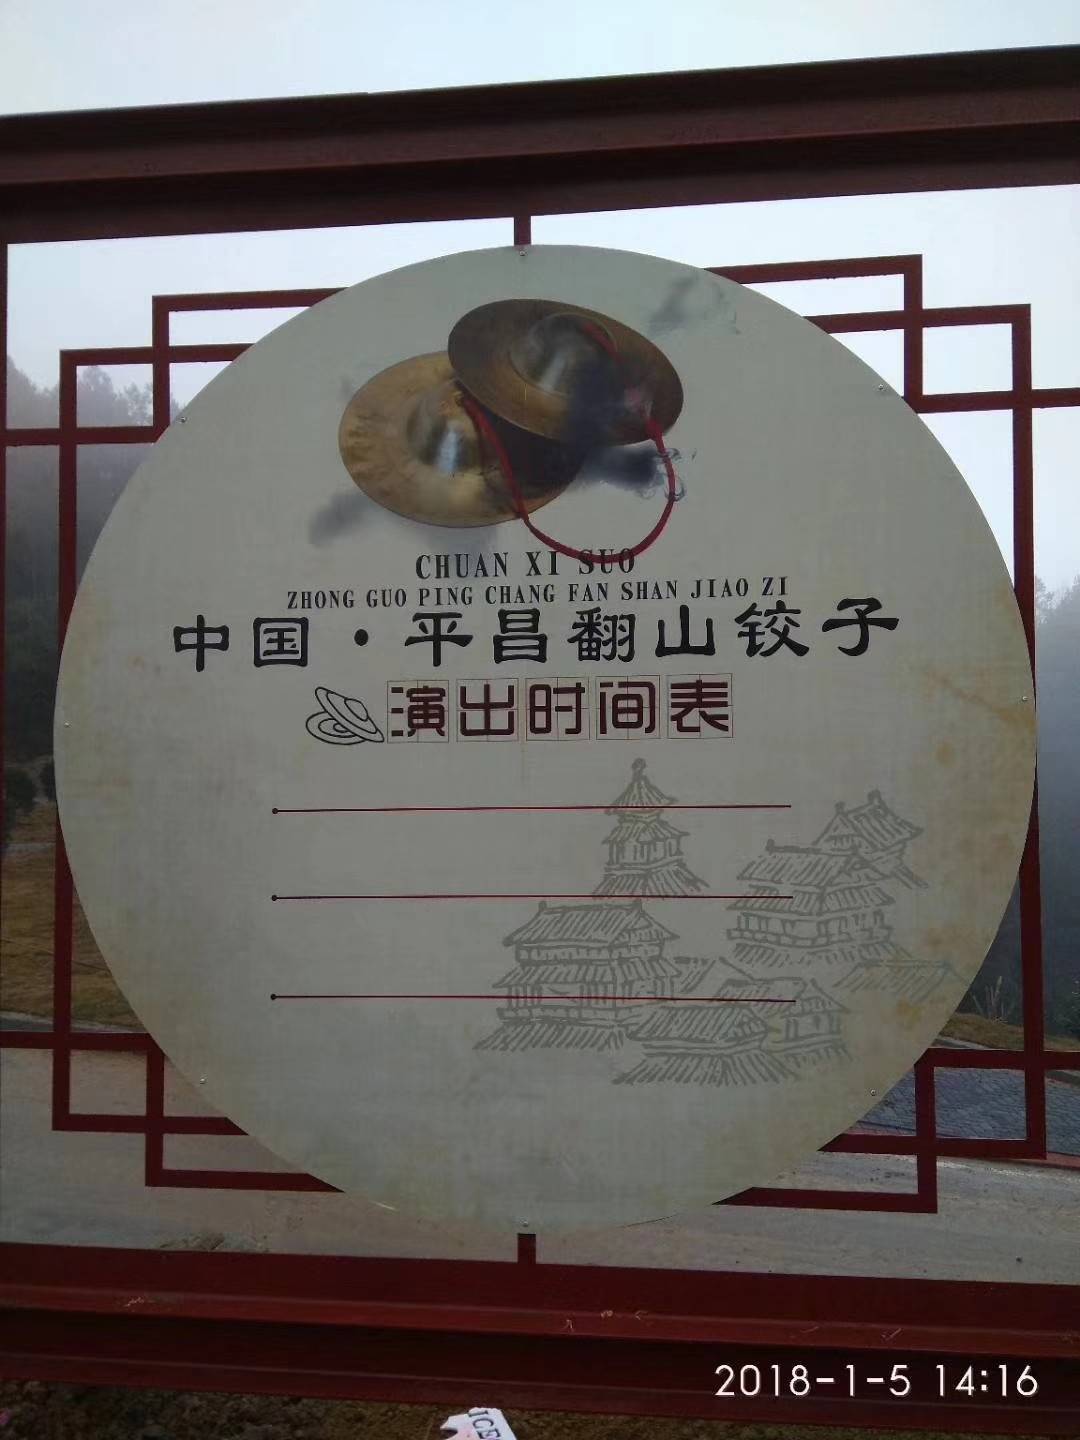 CHUAN XI SUO
ZHONG GUO PING CHANG FAN SHAN JIAO ZI
中国·平昌翻山铰子
演出时间表
2018-1-5 14:16
ICE